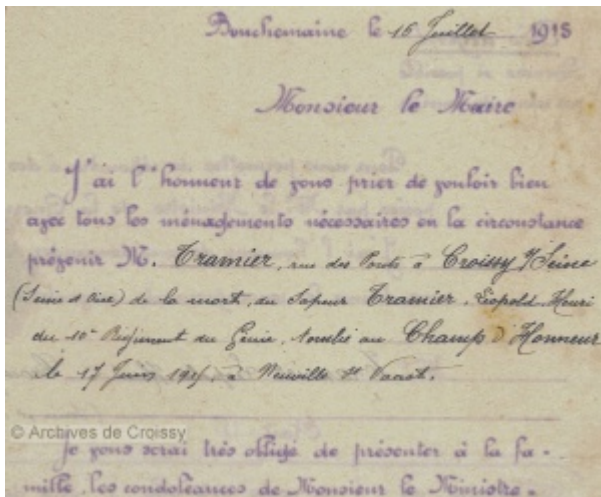 Bouchemaine le 16 Juillet 1915
Monsieur le Maire
J'ai l'honneur de vous prier de vouloir bien
avec tous les ménagements nécessaires en la circonstance
prévenir M. Tramier, rue des Ponts à Croissy s/Seine
(Seine et Oise) de la mort, du Sapeur Tramier, Léopold Henri
du 10e Régiment du Génie, tombé au Champ d'Honneur
le 17 Juin 1915, à Neuville St Vaast.
© Archives de Croissy
Je vous serai très obligé de présenter à la fa-
mille, les condoléances de Monsieur le Ministre